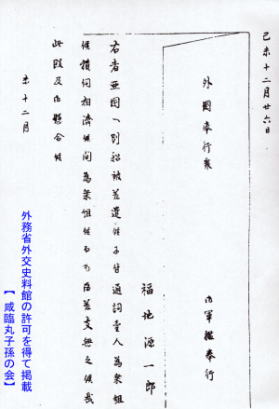 己未十二月廿六日
外國奉行衆
御軍艦奉行
福地源一郎
右者亜国へ別船被差遣候ニ付通詞壱人為乗組
候積伺相済候間為乗組候而も御差支無之候哉
此段及御懸合候
未十二月
外務省外交史料館の許可を得て掲載
【咸臨丸子孫の会】